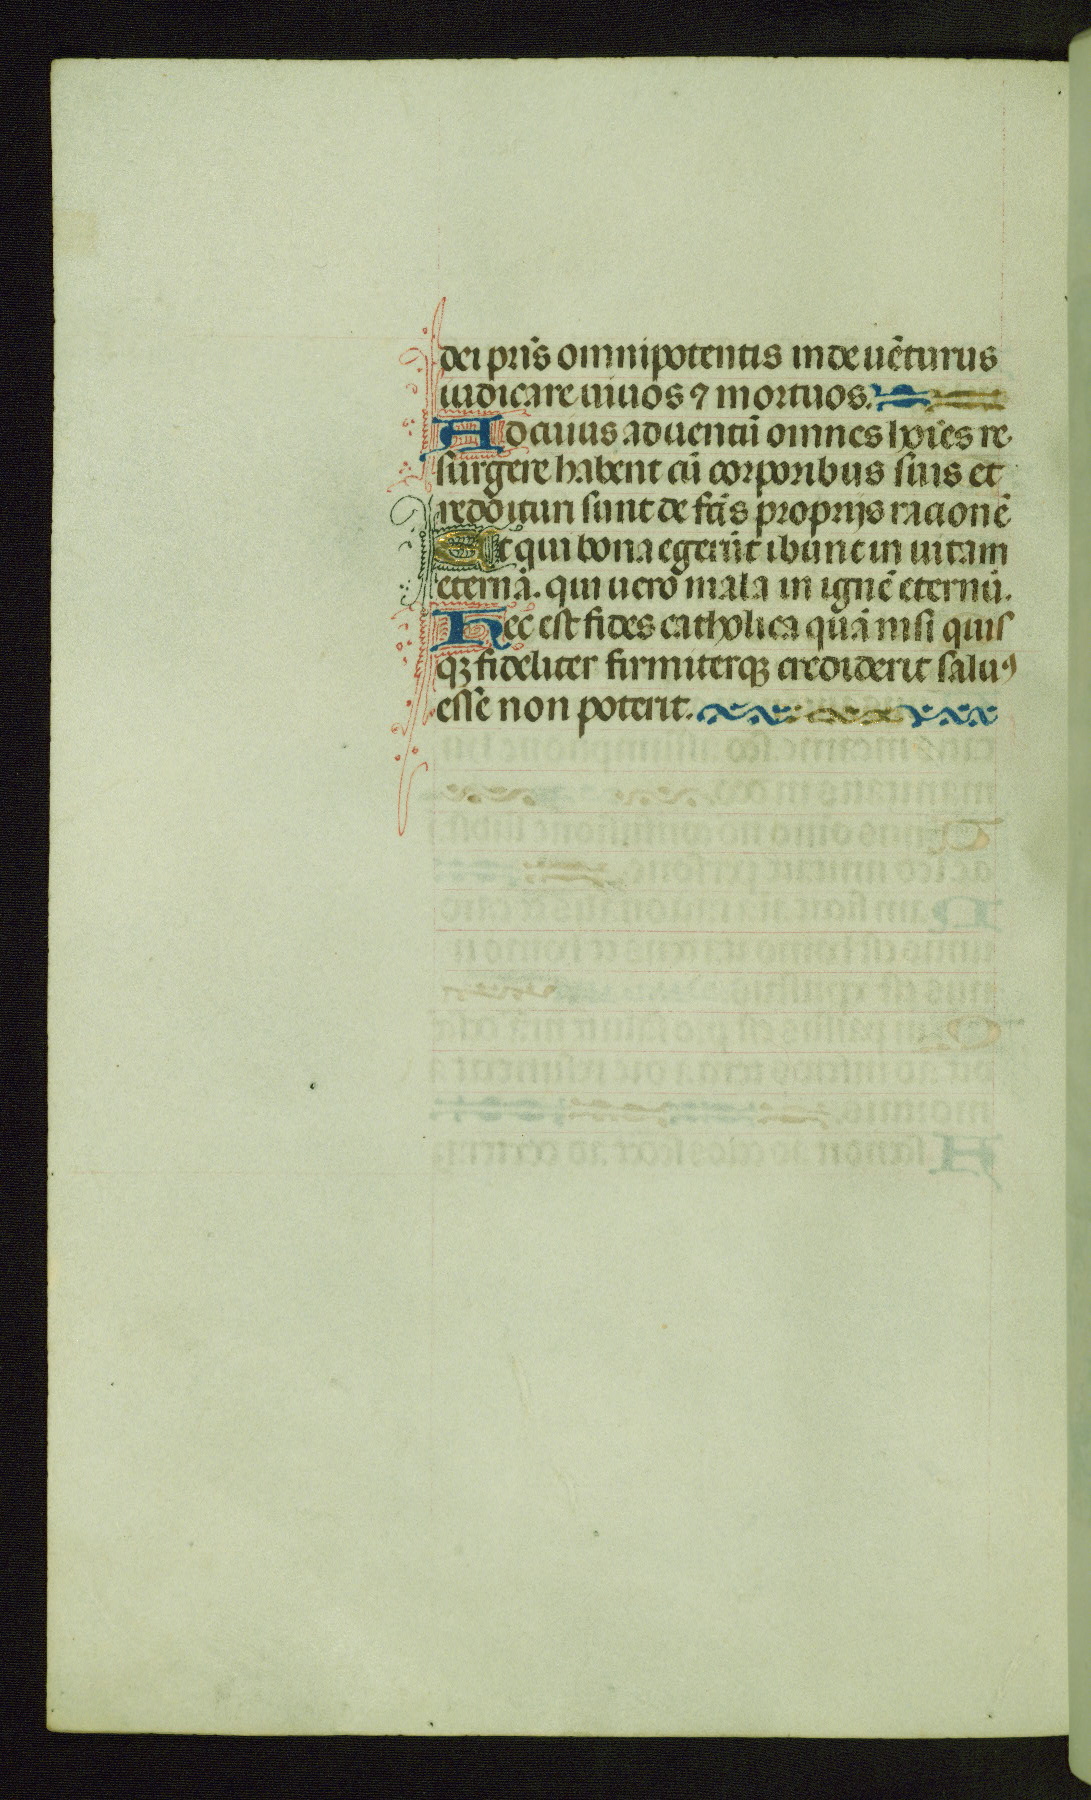 dei pr̃is omnipotentis inde uẽturus
iudicare uiuos ⁊ mortuos.
Ad cuius aduentũ omnes hoĩes re
surgere habent cũ corporibus suis et
reddituri sunt de fc̃is proprijs racionẽ
Et qui bona egerũt ibunt in uitam
eternã. qui uero mala in ignẽ eternũ.
Hec est fides catholica quã nisi quis
qꝫ fideliter firmiterqꝫ crediderit saluꝰ
esse non poterit.